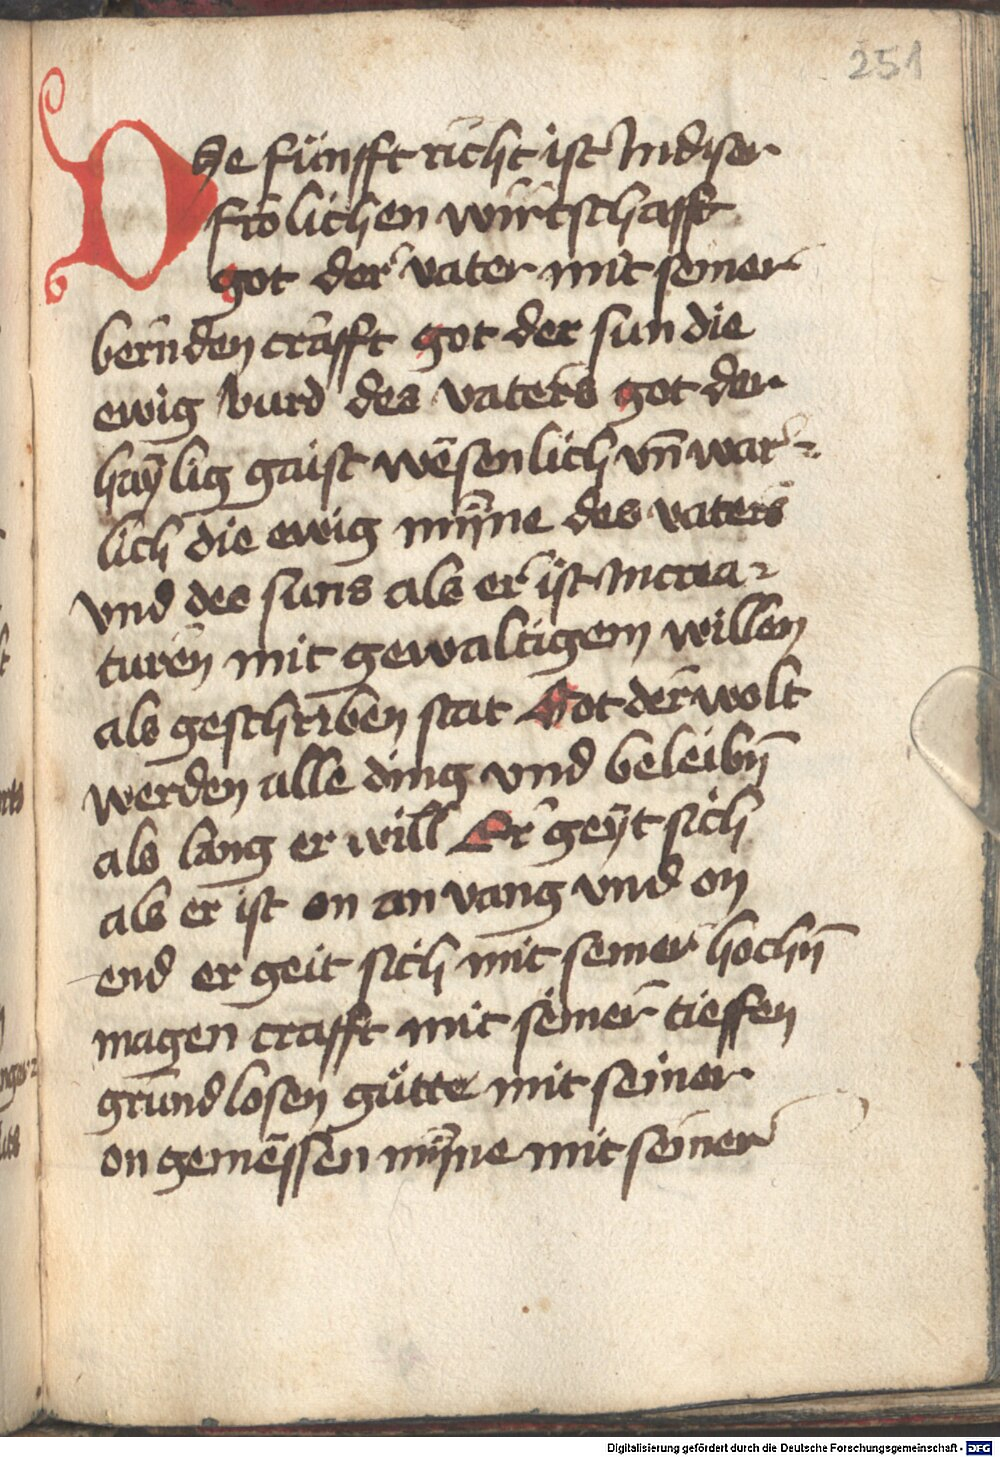 251
Die fünfft richt ist Jn diser
frölichen wirtschafft
got der vater mit seiner
bernden crafft got der sun die
ewig burd des vaters got der
haÿlig gaist wesenlich vn̄ war-
lich die ewig mÿne des vaters
vnd des suns als er ist Jn crea-
turen mit gewaltigem willen
als geschriben stat Got der wolt
werden alle ding vnd beleibn̄
als lang er will Er geÿt sich
als er ist on an vang vnd on
end er geit sich mit seiner hochn̄
magen crafft mit seiner tieffen
grund losen gütte mit seiner
on gemessen mÿne mit seiner
Digitalisierung gefördert durch die Deutsche Forschungsgemeinschaft - DFG